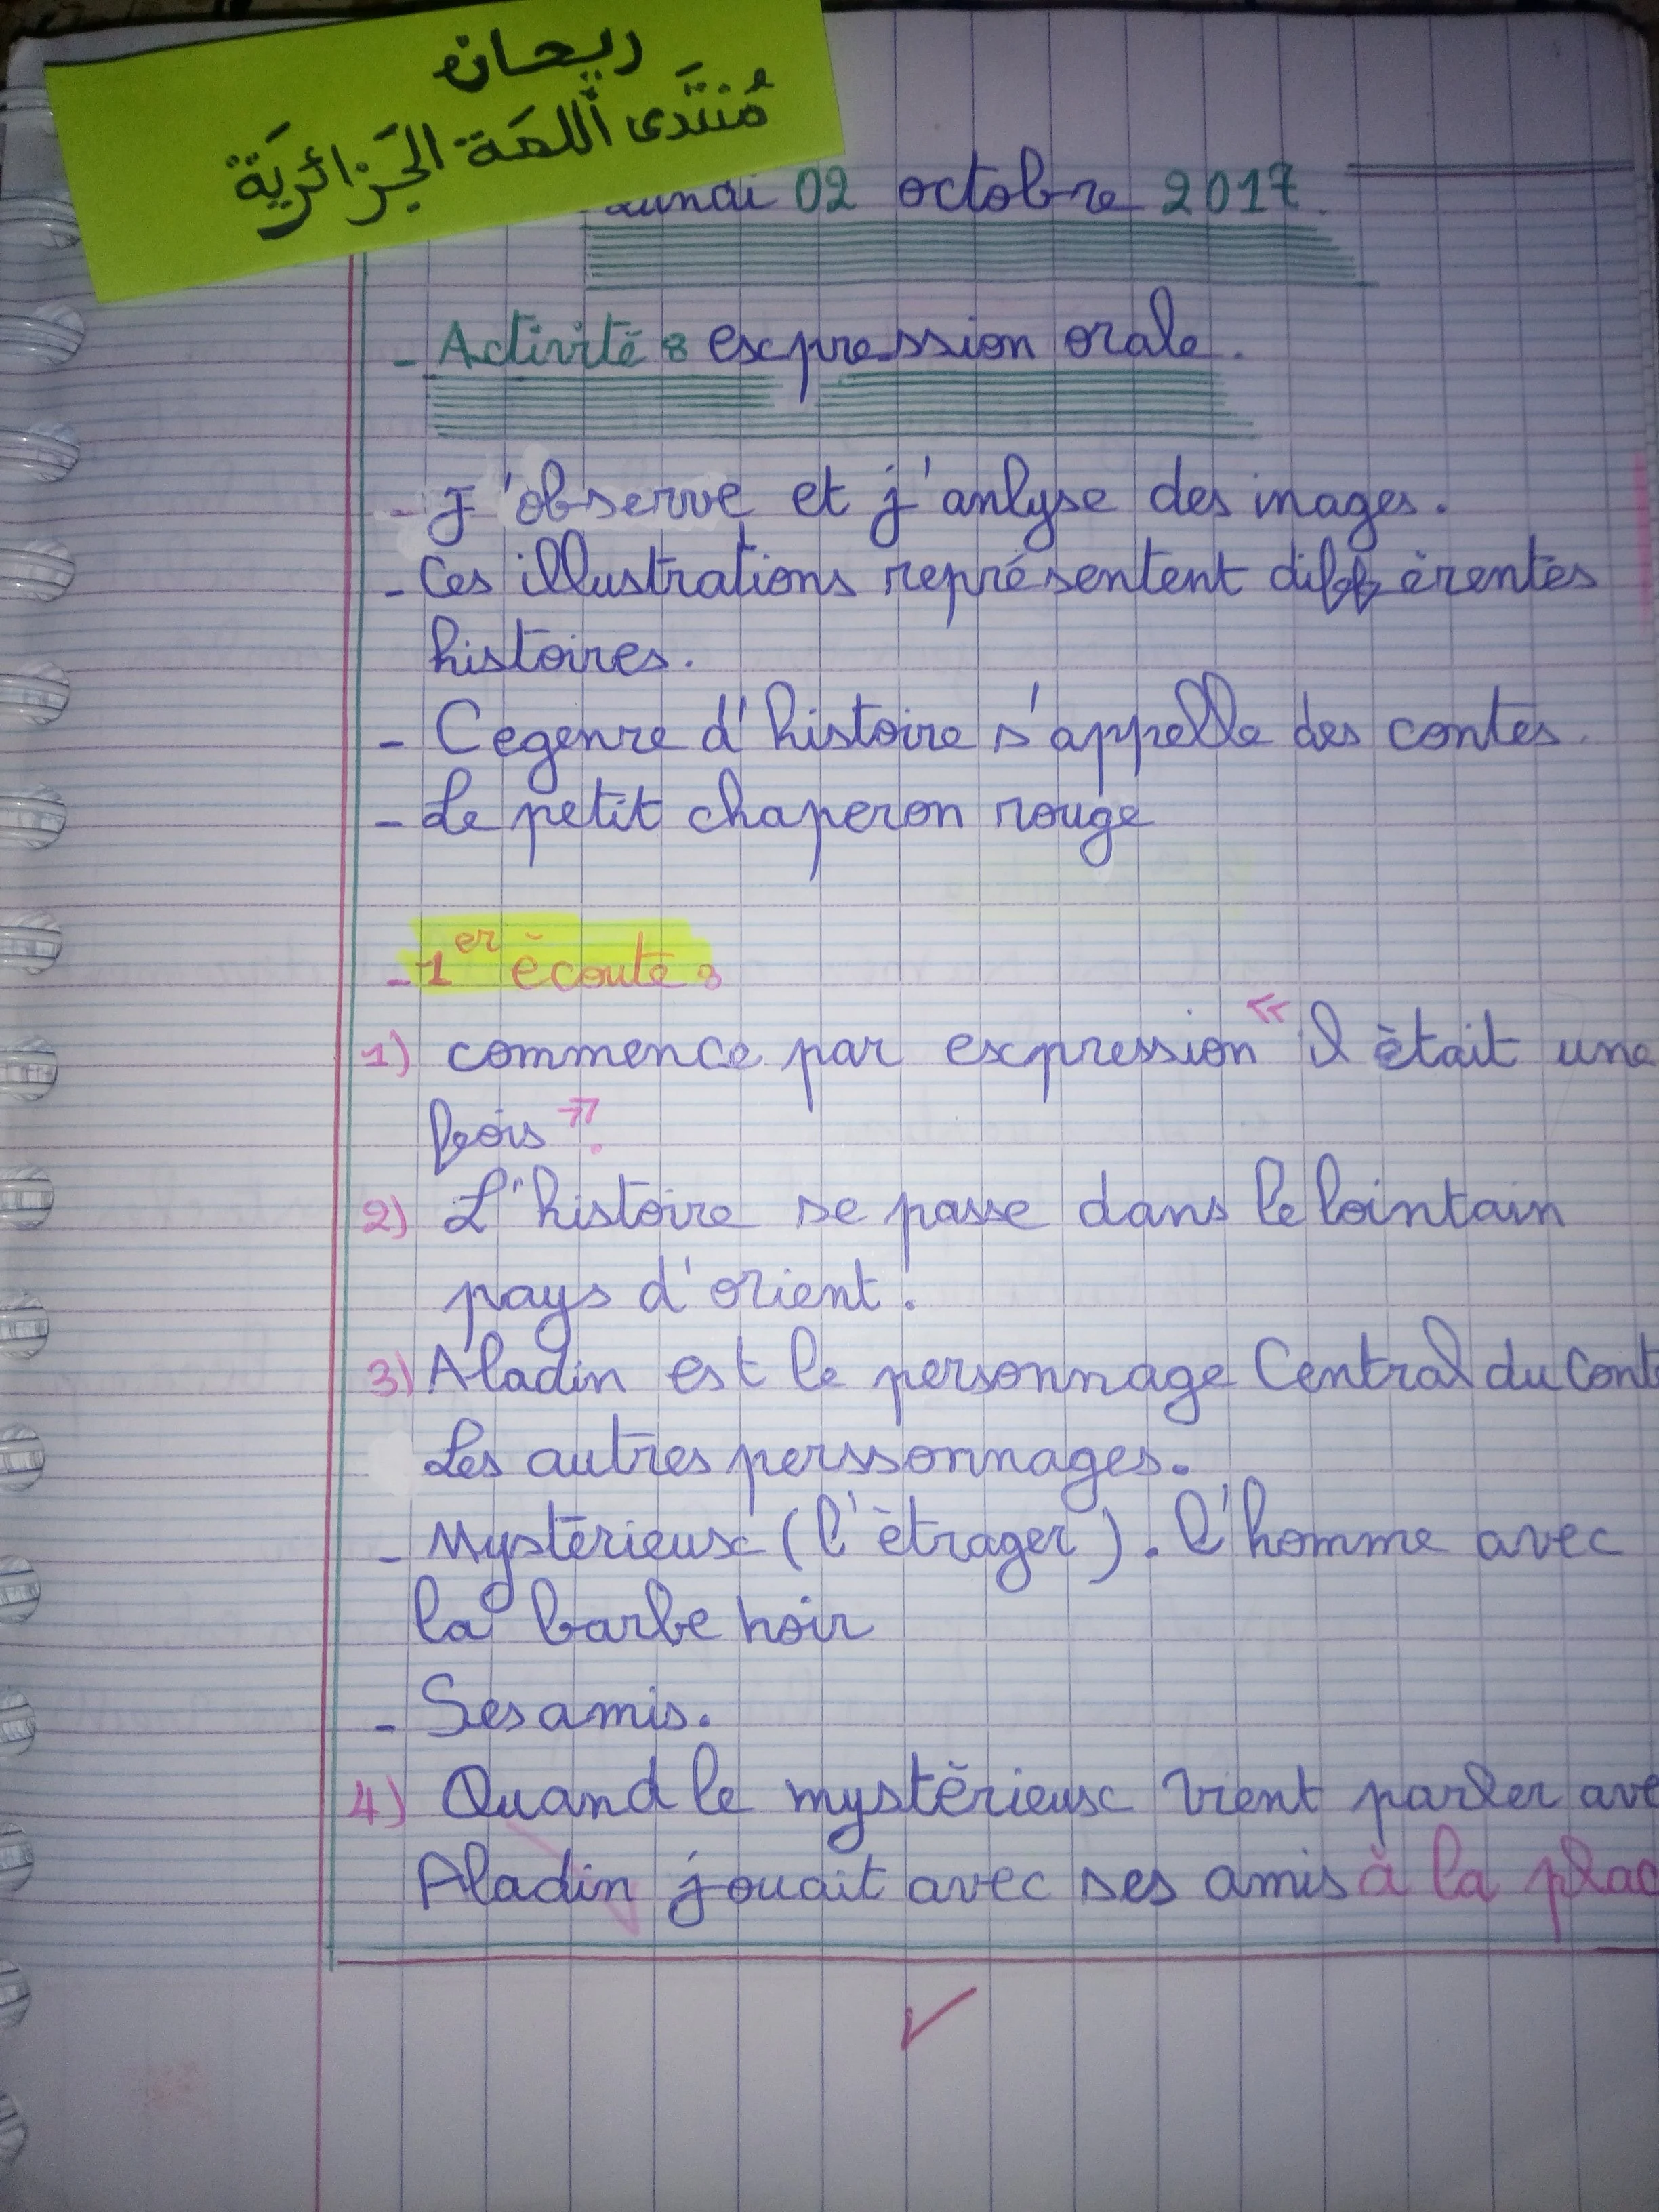 ريحان
مُنتَدى اللمَة الجَزائريَة
Lundi 02 octobre 2017
- Activité : expression orale.
- J'observe et j'anlyse des images.
- Ces illustrations représentent différentes
histoires.
- Ce genre d'histoire s'appelle des contes.
- Le petit chaperon rouge
- 1er écoute :
1) commence par expression « Il était une
fois ».
2) L'histoire se passe dans le lointain
pays d'orient.
3) Aladin est le personnage Central du Cont
Les autres perssonnages.
- Mystérieux (l'étrager). l'homme avec
la barbe noir
- Ses amis.
4) Quand le mystérieux vient parler ave
Aladin jouait avec ses amis à la plac